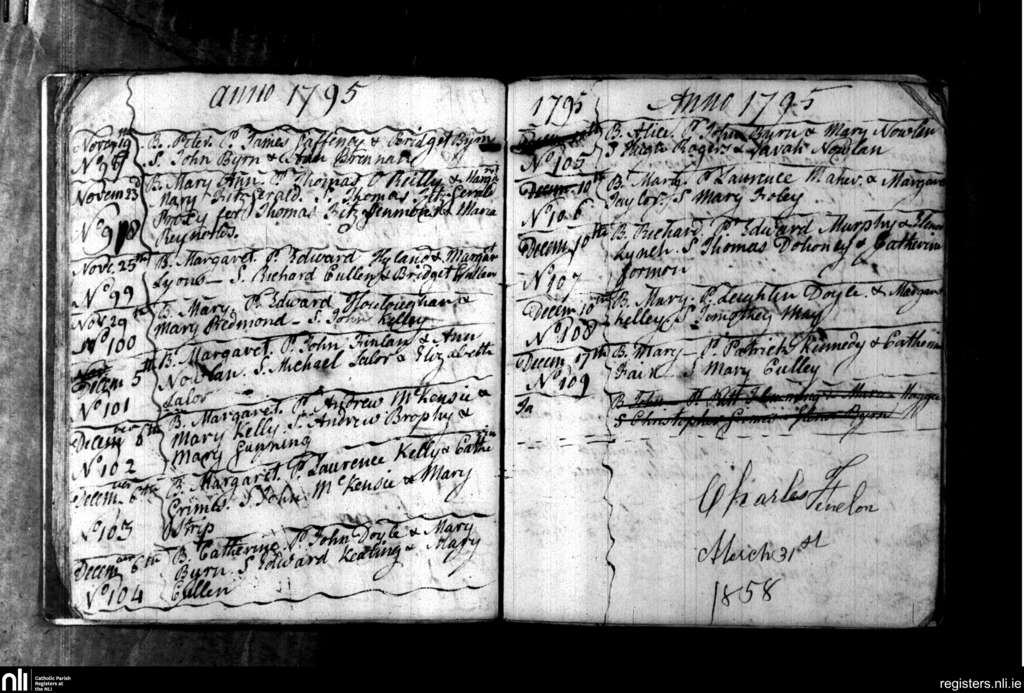 anno 1795
Novem 19
No 97
B. Peter. P. James Gaffeney & Bridget Byrn
S. John Byrn & Ann Brennan
Novem 23
No 98
B. Mary Ann. P. Thomas O Reilly & Marga
Mary Fitz Gerald. S. Thomas Fitz Gerald
Proxy for Thomas Fitz & Maria
Reynolds.
Nove. 25th
No 99
B. Margaret. P. Edward Hyland & Margar
Lyons — S. Richard Cullen & Bridget Cullen
Nov. 29th
No 100
B. Mary. P. Edward &
Mary Redmond — S. John Kelley
Decem 5th
No 101
B. Margaret. P. John Finlan & Ann
Nowlan. S. Michael Lalor & Elizabeth
Lalor
Decem 6th
No 102
B. Margaret. P. Andrew McKensie &
Mary Kelly. S. Andrew Brophy &
Mary Gunning
Decem 6th
No 103
B. Margaret. P. Laurence Kelly & Cathe
Grimes. S. John McKensie & Mary
Strip
Decem 6th
No 104
B. Catherine. P. John Doyle & Mary
Byrn. S. Edward Keating & Mary
Cullen
1795 Anno 1795
No 105
B. Alice. P. John Byrn & Mary Nowlan
S Hugh Rogers & Sarah Nowlan
Decem 10th
No 106
B. Mary P. Laurence Maher. & Margare
Taylor. S Mary Foley
Decem 10th
No 107
B. Richard. P. Edward Murphy & Elenor
Lynch. S. Thomas Dohoney & Catherin
Gormon
Decem 10th
No 108
B. Mary. P. Leughlin Doyle. & Margare
Kelley. S Timothey May
Decem 17th
No 109
B. Mary — P. Patrick Kennedy & Catherin
Fair — S Mary Culley
Ja
B. John
S Christopher Byrn
Charles Fenelon
March 31st
1858
nli
Catholic Parish
Registers at
the NLI
registers.nli.ie